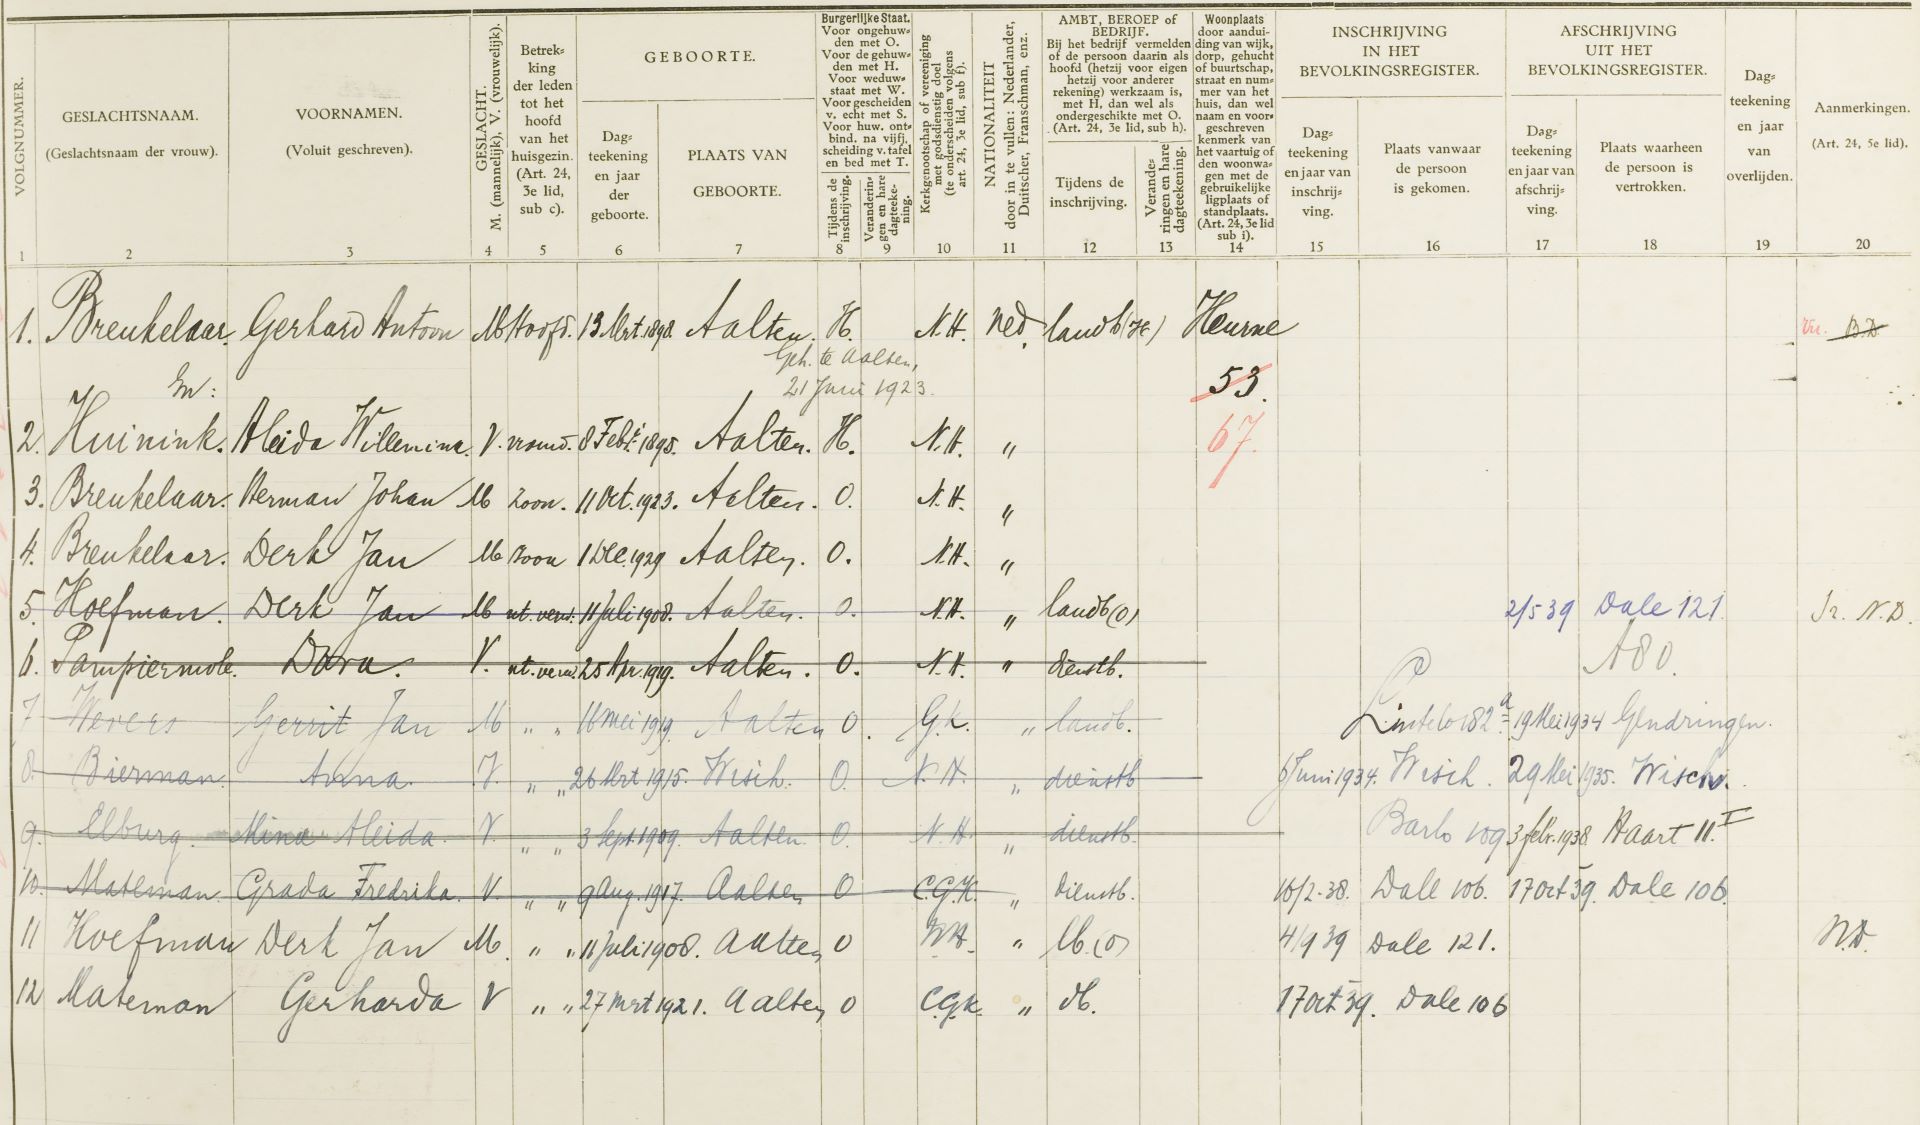 VOLGNUMMER.
1
GESLACHTSNAAM.
(Geslachtsnaam der vrouw).
2
VOORNAMEN.
(Voluit geschreven).
3
GESLACHT.
M. (mannelijk). V. (vrouwelijk).
4
Betrek-
king
der leden
tot het
hoofd
van het
huisgezin.
(Art. 24,
3e lid,
sub c).
5
GEBOORTE.
Dag-
teekening
en jaar
der
geboorte.
6
PLAATS VAN
GEBOORTE.
7
Burgerlijke Staat.
Voor ongehuw-
den met O.
Voor de gehuw-
den met H.
Voor weduw-
staat met W.
Voor gescheiden
v. echt met S.
Voor huw. ont-
bind. na vijfj.
scheiding v. tafel
en bed met T.
Tijdens de
inschrijving.
8
Veranderin-
gen en hare
dagteeke-
ning.
9
Kerkgenootschap of vereeniging
met godsdienstig doel
(te onderscheiden volgens
art. 24, 3e lid, sub f).
10
NATIONALITEIT
door in te vullen: Nederlander,
Duitscher, Franschman, enz.
11
AMBT, BEROEP of
BEDRIJF.
Bij het bedrijf vermelden
of de persoon daarin als
hoofd (hetzij voor eigen
hetzij voor anderer
rekening) werkzaam is,
met H, dan wel als
ondergeschikte met O.
(Art. 24, 3e lid, sub h).
Tijdens de
inschrijving.
12
Verande-
ringen en hare
dagteekening.
13
Woonplaats
door aandui-
ding van wijk,
dorp, gehucht
of buurtschap,
straat en num-
mer van het
huis, dan wel
naam en voor-
geschreven
kenmerk van
het vaartuig of
den woonwa-
gen met de
gebruikelijke
ligplaats of
standplaats.
(Art. 24, 3e lid
sub i).
14
INSCHRIJVING
IN HET
BEVOLKINGSREGISTER.
Dag-
teekening
en jaar van
inschrij-
ving.
15
Plaats vanwaar
de persoon
is gekomen.
16
AFSCHRIJVING
UIT HET
BEVOLKINGSREGISTER.
Dag-
teekening
en jaar van
afschrij-
ving.
17
Plaats waarheen
de persoon is
vertrokken.
18
Dag-
teekening
en jaar
van
overlijden.
19
Aanmerkingen.
(Art. 24, 5e lid).
20
1. Breukelaar. Gerhard Antoon M Hoofd. 13 Mrt. 1898. Aalten. H. N.H. ned. landb (H) Heurne B.D.
Geh. te Aalten,
en: 21 Juni 1923. 53.
2. Huinink. Aleida Willemina. V. vrouw. 8 Febr. 1895. Aalten. H. N.H. " 67.
3. Breukelaar. Herman Johan M Zoon. 11 Oct. 1923. Aalten. O. N.H. "
4. Breukelaar. Derk Jan M Zoon 1 Dec. 1929 Aalten. O. N.H. "
5. Hoefman. Derk Jan M nt. verw. 11 Juli 1908. Aalten. O. N.H. " landb (O) 2/5 39 Dale 121. N.D.
6. Pampiermole. Dora. V. nt. verw. 25 Apr. 1919. Aalten. O. N.H. " dienstb. A80.
7 Wevers Gerrit Jan M " " 16 Mei 1919. Aalten O. G.K. " landb. Lintelo 182 a 19 Mei 1934 Gendringen.
8. Bierman. Anna. V. " " 26 Mrt 1915. Wisch. O. N.H. " dienstb 6 Juni 1934. Wisch. 29 Mei 1935. Wisch.
9. Elburg. Mina Aleida. V. " " 3 Sept. 1909. Aalten. O. N.H. " dienstb. Barlo 109 3 febr. 1938 Haart 11 I
10. Mateman. Grada Fredrika. V. " " 9 Aug. 1917. Aalten O C.G.K. " dienstb. 16/2-38. Dale 106. 17 Oct 39. Dale 106.
11 Hoefman Derk Jan M. " " 11 Juli 1908. Aalten O N.H. " lb. (O) 4/9 39 Dale 121. N.D.
12 Mateman Gerharda V " " 27 Mrt 1921. Aalten O C.G.K. " db. 17 Oct 39. Dale 106